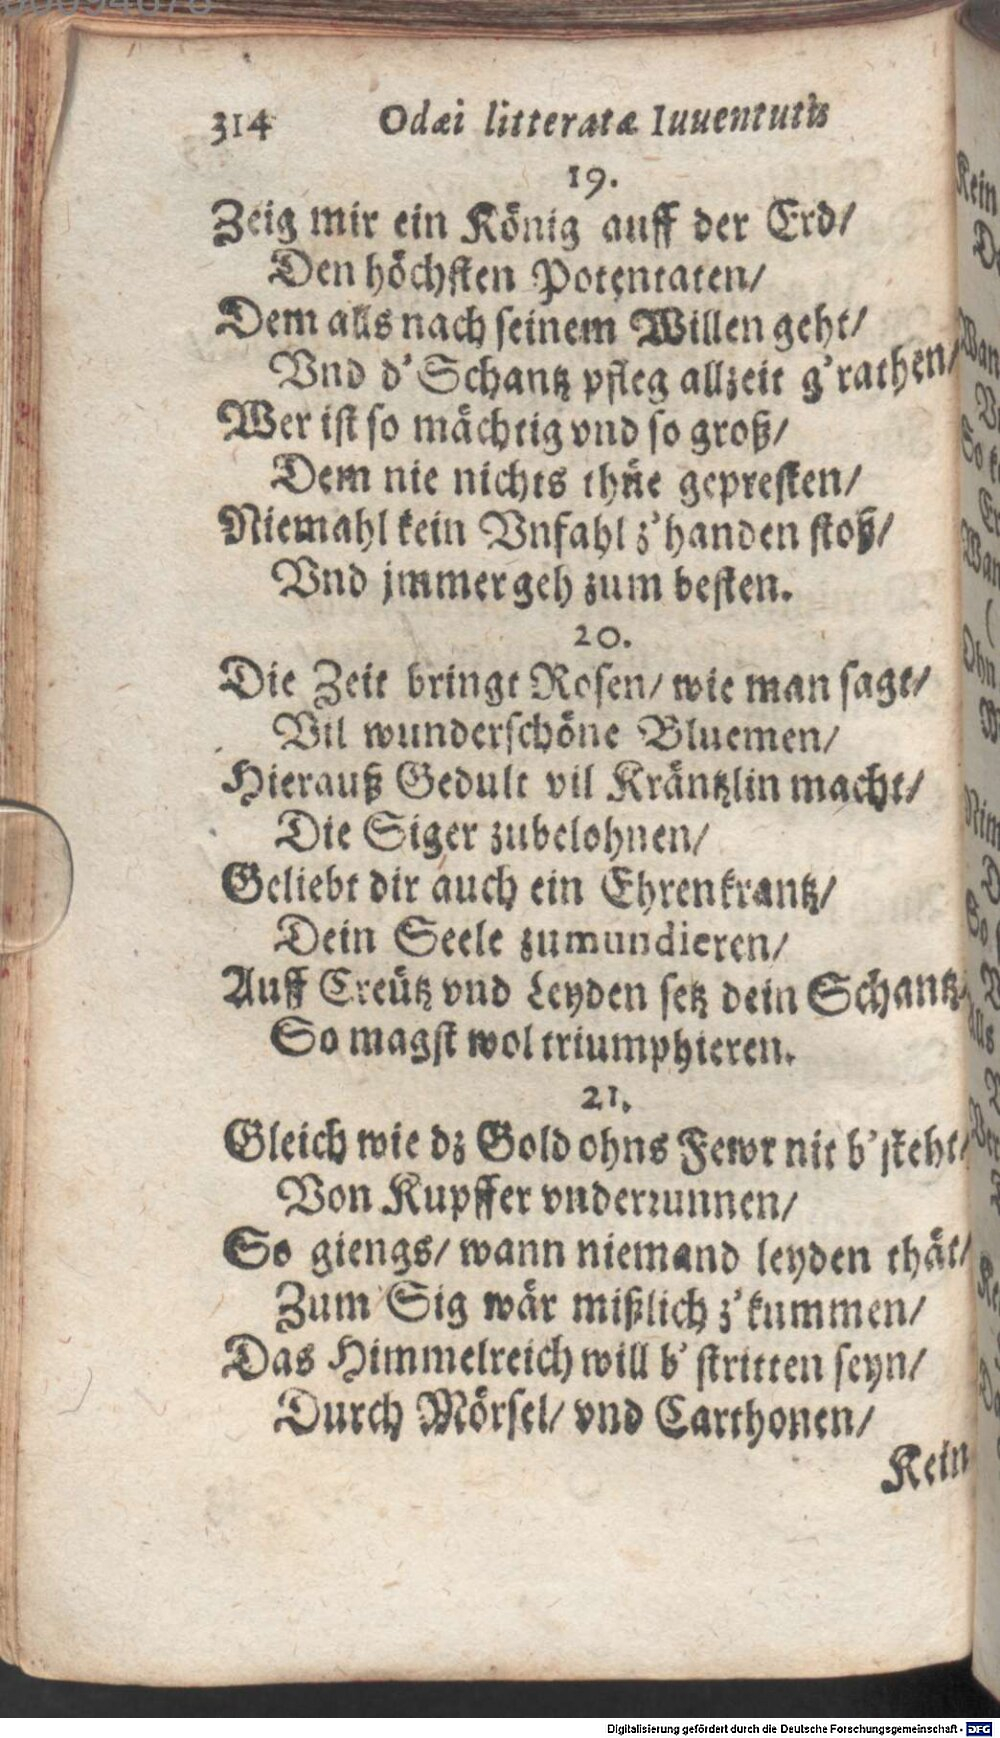 314 Odæi litteratæ Iuuentutis
19.
Zeig mir ein König auff der Erd/
Den höchsten Potentaten/
Dem alls nach seinem Willen geht/
Vnd d'Schantz pfleg allzeit g'rathen/
Wer ist so mächtig vnd so groß/
Dem nie nichts thüe gepresten/
Niemahl kein Vnfahl z'handen stoß/
Vnd jmmer geh zum besten.
20.
Die Zeit bringt Rosen/ wie man sagt/
Vil wunderschöne Bluemen/
Hierauß Gedult vil Kräntzlin macht/
Die Siger zubelohnen/
Geliebt dir auch ein Ehrenkrantz/
Dein Seele zumundieren/
Auff Creütz vnd Leyden setz dein Schantz/
So magst wol triumphieren.
21.
Gleich wie dz Gold ohns Fewr nit b'steht/
Von Kupffer vnderrunnen/
So giengs/ wann niemand leyden thät/
Zum Sig wär mißlich z'kummen/
Das Himmelreich will b'stritten seyn/
Durch Mörsel/ vnd Carthonen/
Kein
Digitalisierung gefördert durch die Deutsche Forschungsgemeinschaft - DFG